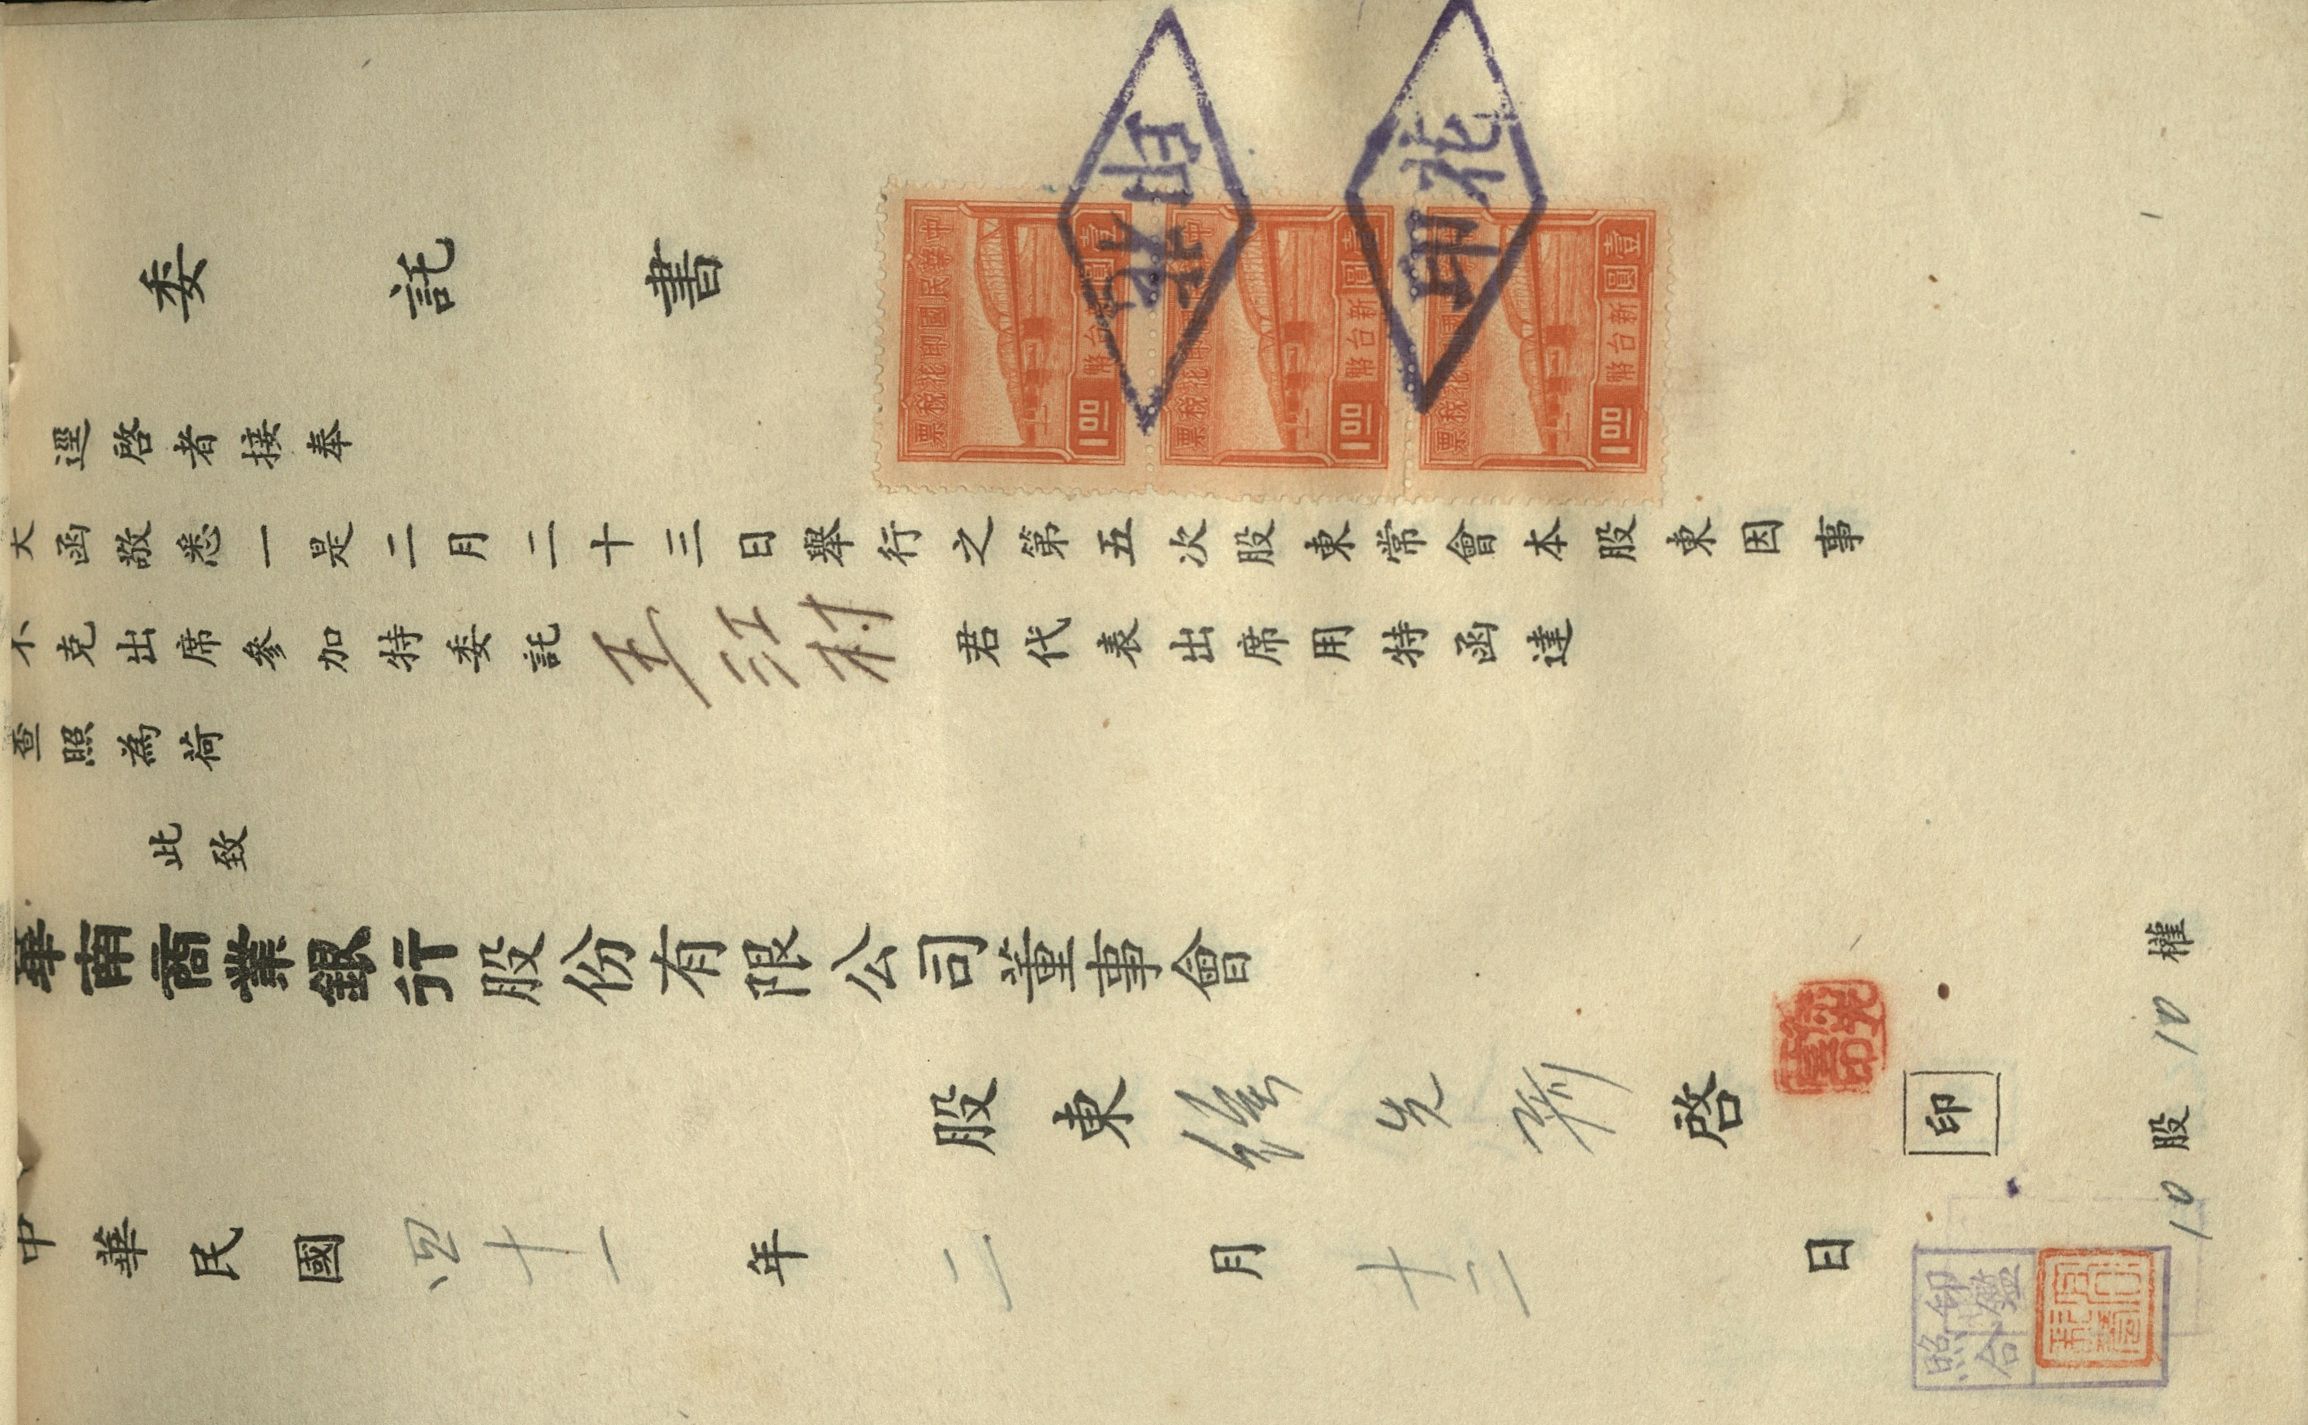 委託書
逕啓者接奉
大函敬悉一是二月二十三日舉行之第五次股東常會本股東因事
不克出席參加特委託王江村君代表出席用特函達
查照為荷
此致
華南商業銀行股份有限公司董事會
股東 先 啓
印
中華民國四十一年二月十二日
10股10權
中華民國印花稅票
壹圓
新台幣
1.00
壹圓
新台幣
1.00
壹圓
新台幣
1.00
印花
印花
印鑑
照合